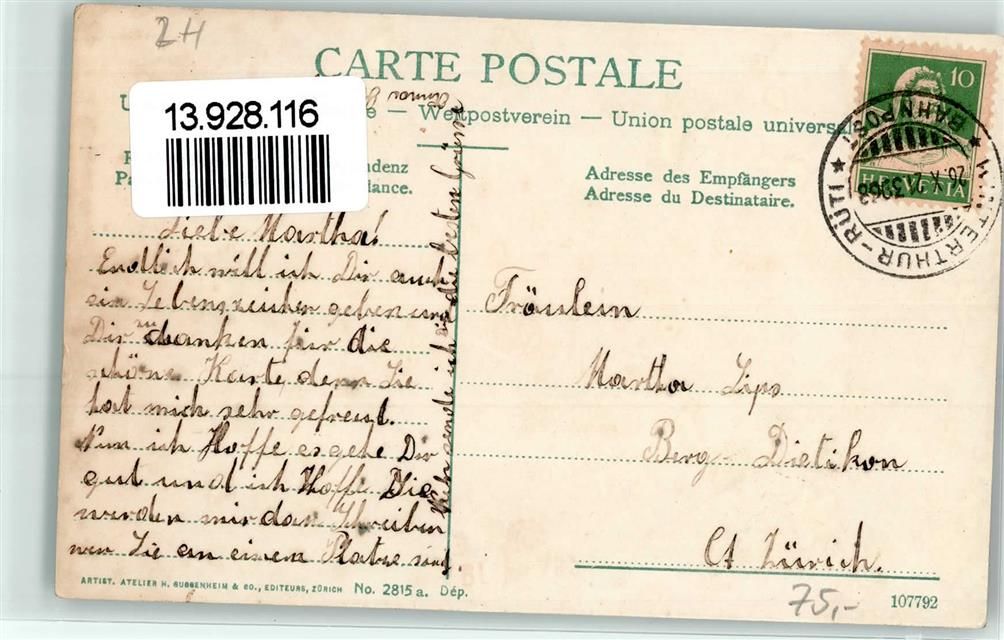 2H
CARTE POSTALE
13.928.116
Weltpostverein — Union postale universelle
Adresse des Empfängers
Adresse du Destinataire.
10
HELVETIA
WINTERTHUR-RÜTI
BAHNPOST
Liebe Martha!
Endlich will ich Dir auch
ein Lebenszeichen geben und
Dir zu danken für die
schöne Karte, denn Sie
hat mich sehr gefreut.
Nun ich Hoffe es gehe Dir
gut und ich Hoffe Sie
werden mir dan Schreiben
wen Sie an einem Platze sind.
sende ich die besten Grüsse
Fräulein
Martha Lips
Berg Dietikon
Ct Zürich.
ARTIST. ATELIER H. GUGGENHEIM & CO., EDITEURS, ZÜRICH No. 2815a. Dép.
75,-
107792